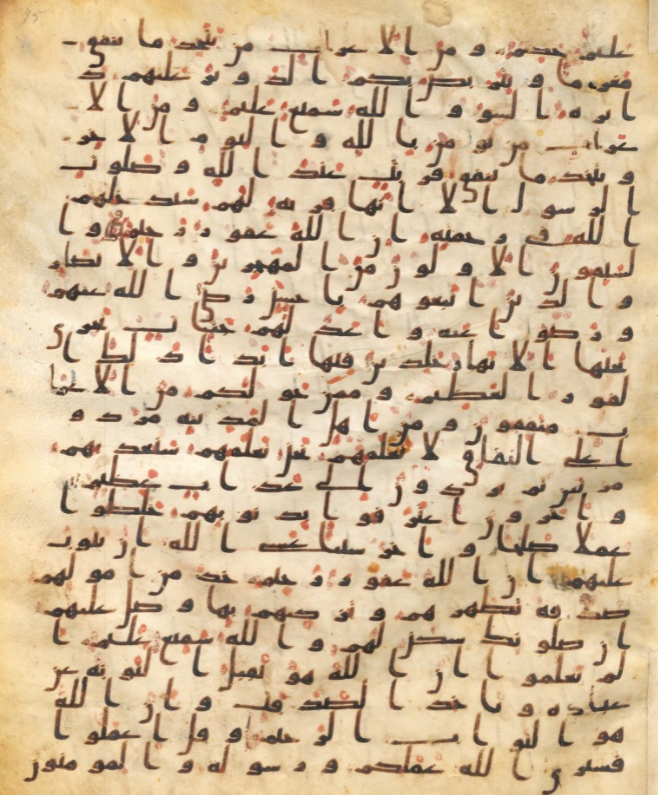 عليم حكيم و من الاعراب من يتخذ ما ينفق
مغرما و يتربص بكم الدوئر عليهم د
ائره السو و الله سميع عليم و من الا
عراب من يومن بالله و اليوم الاخر
و يتخذ ما ينفق قربت عند الله و صلوت
الرسول الا انها قربه لهم سيدخلهم
الله في رحمته ان الله غفور رحيم و ا
لسبقون الاولون من المهجرين و الانصار
و الذين اتبعوهم باحسن رضي الله عنهم
و رضوا عنه و اعد لهم جنات تجري
تحتها الانهار خلدين فيها ابدا ذلك ا
لفوز العظيم و ممن حولكم من الاعرا
ب منفقون و من اهل المدينه مردو
ا على النفاق لا تعلمهم نحن نعلمهم سنعذبهم
مرتين ثم يردون الى عذاب عظيم
و اخرون اعترفوا بذنوبهم خلطوا
عملا صلحا و اخر سيا عسى الله ان يتوب
عليهم ان الله غفور رحيم خذ من امولهم
صدقه تطهرهم و تزكيهم بها و صل عليهم
ان صلوتك سكن لهم و الله سميع عليم ا
لم يعلموا ان الله هو يقبل التوبه عن
عباده و ياخذ الصدقت و ان الله
هو التواب الرحيم و قل اعملوا
فسيرى الله عملكم و رسوله و المومنون